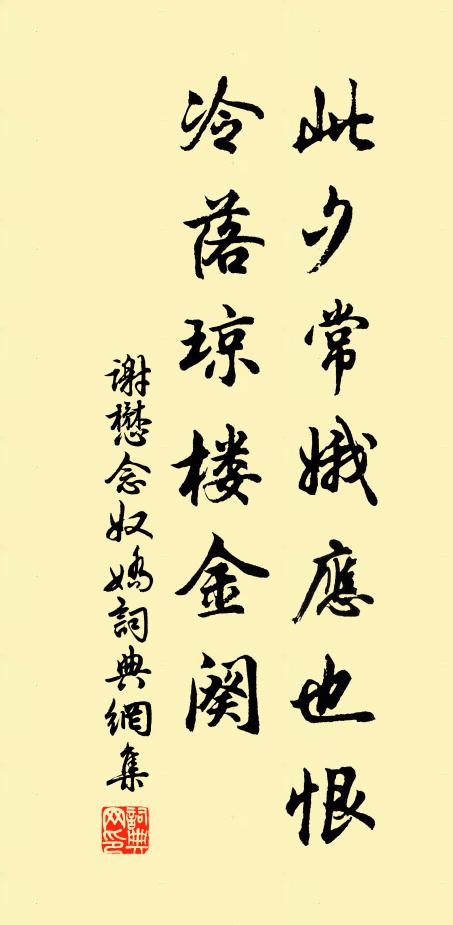 此夕常娥應也恨
冷落琼楼金阕
谢懋念奴嬌詞典網集
詞典網印